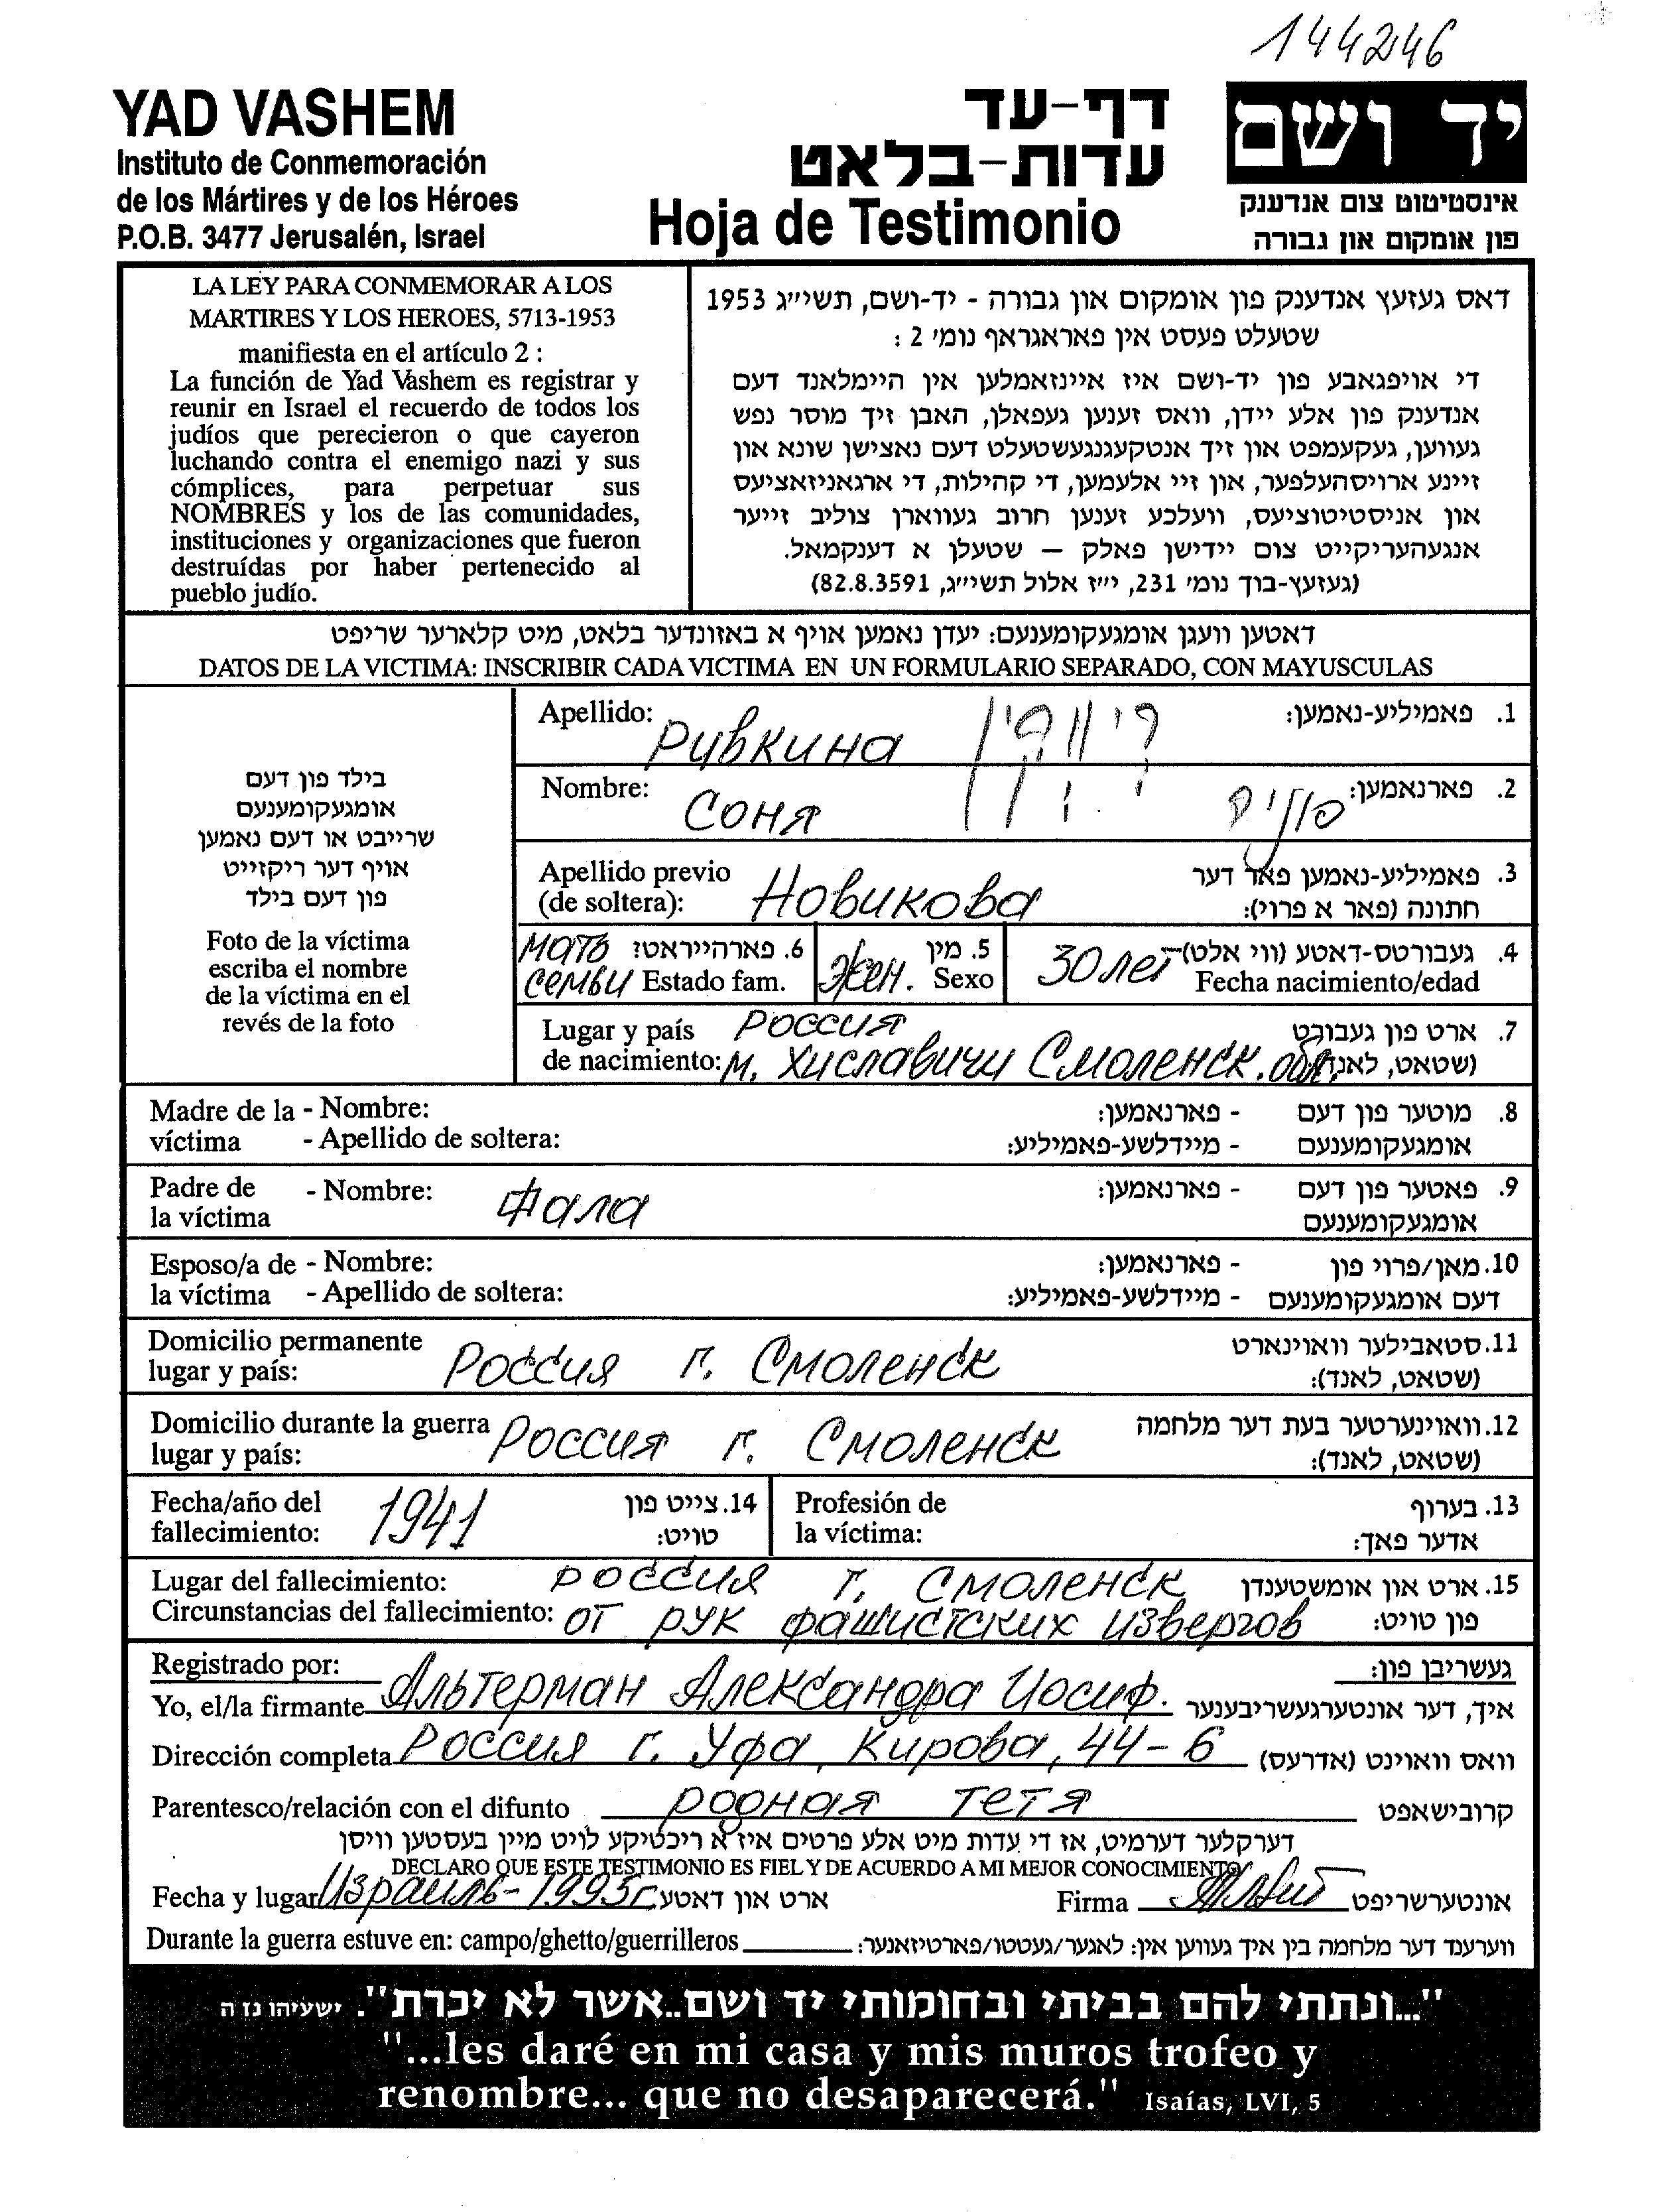 144246
YAD VASHEM
Instituto de Conmemoración
de los Mártires y de los Héroes
P.O.B. 3477 Jerusalén, Israel
דף-עד
עדות-בלאט
Hoja de Testimonio
יד ושם
אינסטיטוט צום אנדענק
פון אומקום און גבורה
LA LEY PARA CONMEMORAR A LOS
MARTIRES Y LOS HEROES, 5713-1953
manifiesta en el artículo 2 :
La función de Yad Vashem es registrar y
reunir en Israel el recuerdo de todos los
judíos que perecieron o que cayeron
luchando contra el enemigo nazi y sus
cómplices, para perpetuar sus
NOMBRES y los de las comunidades,
instituciones y organizaciones que fueron
destruídas por haber pertenecido al
pueblo judío.
דאס געזעץ אנדענק פון אומקום און גבורה - יד-ושם, תשי״ג 1953
שטעלט פעסט אין פאראגראף נומ׳ 2 :
די אויפגאבע פון יד-ושם איז איינזאמלען אין היימלאנד דעם
אנדענק פון אלע יידן, וואס זענען געפאלן, האבן זיך מוסר נפש
געווען, געקעמפט און זיך אנטקעגנגעשטעלט דעם נאצישן שונא און
זיינע ארויסהעלפער, און זיי אלעמען, די קהילות, די ארגאניזאציעס
און אניסטיטוציעס, וועלכע זענען חרוב געווארן צוליב זייער
אנגעהעריקייט צום יידישן פאלק — שטעלן א דענקמאל.
(געזעץ-בוך נומ׳ 231, י״ז אלול תשי״ג, 82.8.3591)
דאטען וועגן אומגעקומענעם: יעדן נאמען אויף א באזונדער בלאט, מיט קלארער שריפט
DATOS DE LA VICTIMA: INSCRIBIR CADA VICTIMA EN UN FORMULARIO SEPARADO, CON MAYUSCULAS
בילד פון דעם
אומגעקומענעם
שרייבט או דעם נאמען
אויף דער ריקזייט
פון דעם בילד
Foto de la víctima
escriba el nombre
de la víctima en el
revés de la foto
Apellido: Рувкина 1. פאמיליע-נאמען:
Nombre: Соня 2. פארנאמען:
Apellido previo 3. פאמיליע-נאמען פאר דער
(de soltera): Новикова חתונה (פאר א פרוי):
мать 6. פארהייראט?
семьи Estado fam.
5. מין
жен. Sexo
30 лет 4. געבורטס-דאטע (ווי אלט)
Fecha nacimiento/edad
Lugar y país Россия 7. ארט פון געבורט
de nacimiento: м. Хиславичи Смоленск. обл. (שטאט, לאנד
Madre de la - Nombre: 8. מוטער פון דעם - פארנאמען:
víctima - Apellido de soltera: אומגעקומענעם - מיידלשע-פאמיליע:
Padre de - Nombre: Фала 9. פאטער פון דעם - פארנאמען:
la víctima אומגעקומענעם
Esposo/a de - Nombre: 10. מאן/פרוי פון - פארנאמען:
la víctima - Apellido de soltera: דעם אומגעקומענעם - מיידלשע-פאמיליע:
Domicilio permanente 11. סטאבילער וואוינארט
lugar y país: Россия г. Смоленск (שטאט, לאנד):
Domicilio durante la guerra 12. וואוינערטער בעת דער מלחמה
lugar y país: Россия г. Смоленск (שטאט, לאנד):
Fecha/año del 1941 14. צייט פון
fallecimiento: טויט:
Profesión de 13. בערוף
la víctima: אדער פאך:
Lugar del fallecimiento: Россия г. Смоленск 15. ארט און אומשטענדן
Circunstancias del fallecimiento: от рук фашистских извергов פון טויט:
Registrado por: געשריבן פון:
Yo, el/la firmante Альтерман Александра Иосиф. איך, דער אונטערגעשריבענער
Dirección completa Россия г. Уфа, Кирова, 44-6 וואס וואוינט (אדרעס)
Parentesco/relación con el difunto родная тетя קרובישאפט
דערקלער דערמיט, אז די עדות מיט אלע פרטים איז א ריכטיקע לויט מיין בעסטען וויסן
DECLARO QUE ESTE TESTIMONIO ES FIEL Y DE ACUERDO A MI MEJOR CONOCIMIENTO
Fecha y lugar Израиль-1995г. ארט און דאטע Firma אונטערשריפט
Durante la guerra estuve en: campo/ghetto/guerrilleros ווערענד דער מלחמה בין איך געווען אין: לאגער/געטטו/פארטיזאנער:
"...ונתתי להם בביתי ובחומותי יד ושם..אשר לא יכרת". ישעיהו נז ה
"...les daré en mi casa y mis muros trofeo y
renombre... que no desaparecerá." Isaías, LVI, 5